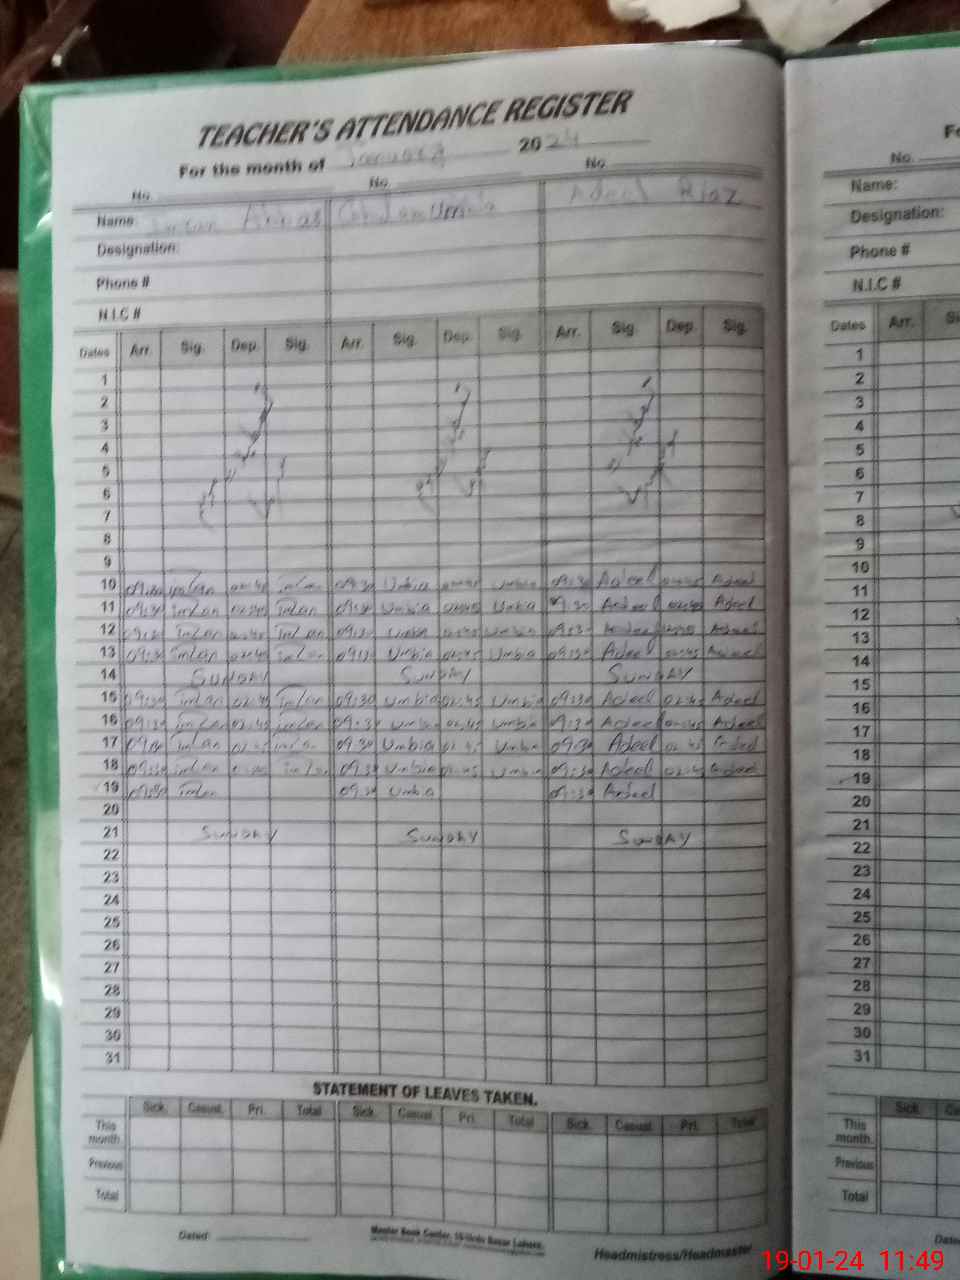 TEACHER'S ATTENDANCE REGISTER
For the month of January 2024
No. No. No.
Name Abbas Adeel Riaz
Designation:
Phone #
N.I.C #
Dates Arr. Sig. Dep. Sig. Arr. Sig. Dep. Sig. Arr. Sig. Dep. Sig.
1
2
3
4
5
6
7
8
9
10 09:30 imran 02:45 imran 09:30 Umbia 02:45 Umbia 09:30 Adeel 02:45 Adeel
11 09:30 imran 02:45 imran 09:30 Umbia 02:45 Umbia 09:30 Adeel 02:45 Adeel
12 09:30 imran 02:45 imran 09:30 Umbia 02:45 Umbia 09:30 Adeel 02:45 Adeel
13 09:30 imran 02:45 imran 09:30 Umbia 02:45 Umbia 09:30 Adeel 02:45 Adeel
14 SUNDAY SUNDAY SUNDAY
15 09:30 imran 02:45 imran 09:30 Umbia 02:45 Umbia 09:30 Adeel 02:45 Adeel
16 09:30 imran 02:45 imran 09:30 Umbia 02:45 Umbia 09:30 Adeel 02:45 Adeel
17 09:30 imran 02:45 imran 09:30 Umbia 02:45 Umbia 09:30 Adeel 02:45 Adeel
18 09:30 imran imran 09:30 Umbia 02:45 Umbia 09:30 Adeel 02:45 Adeel
19 09:30 imran 09:30 Umbia 09:30 Adeel
20
21 SUNDAY SUNDAY SUNDAY
22
23
24
25
26
27
28
29
30
31
STATEMENT OF LEAVES TAKEN.
Sick. Casual. Pri. Total Sick. Casual. Pri. Total Sick. Casual. Pri. Total
This month.
Previous
Total
Dated
Master Book Center, 10-Urdu Bazar Lahore.
Headmistress/Headmaster
No.
Name:
Designation:
Phone #
N.I.C #
Dates Arr.
1
2
3
4
5
6
7
8
9
10
11
12
13
14
15
16
17
18
19
20
21
22
23
24
25
26
27
28
29
30
31
Sick.
This month.
Previous
Total
19-01-24 11:49